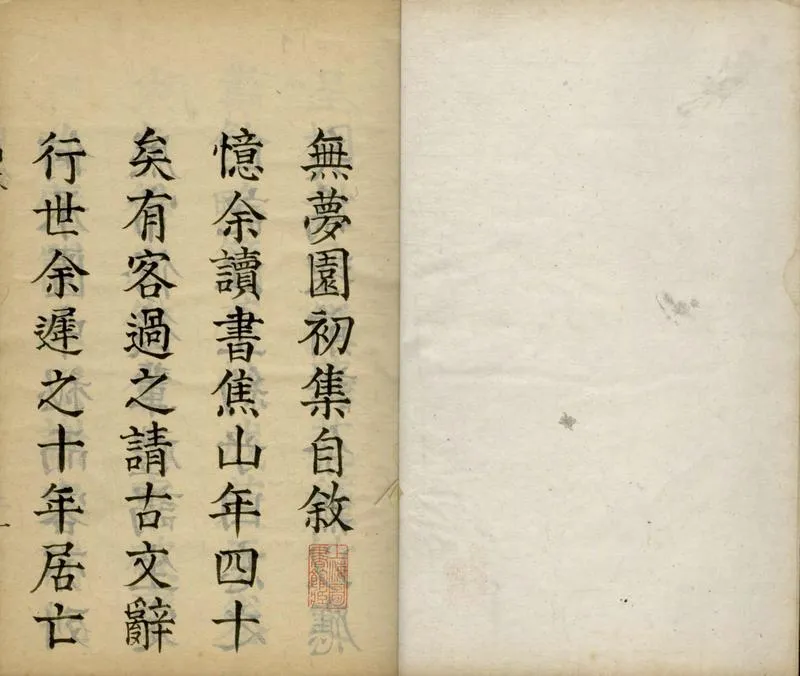 無夢園初集自敘
憶余讀書焦山年四十
矣有客過之請古文辭
行世余遲之十年居亡
上海圖書館藏